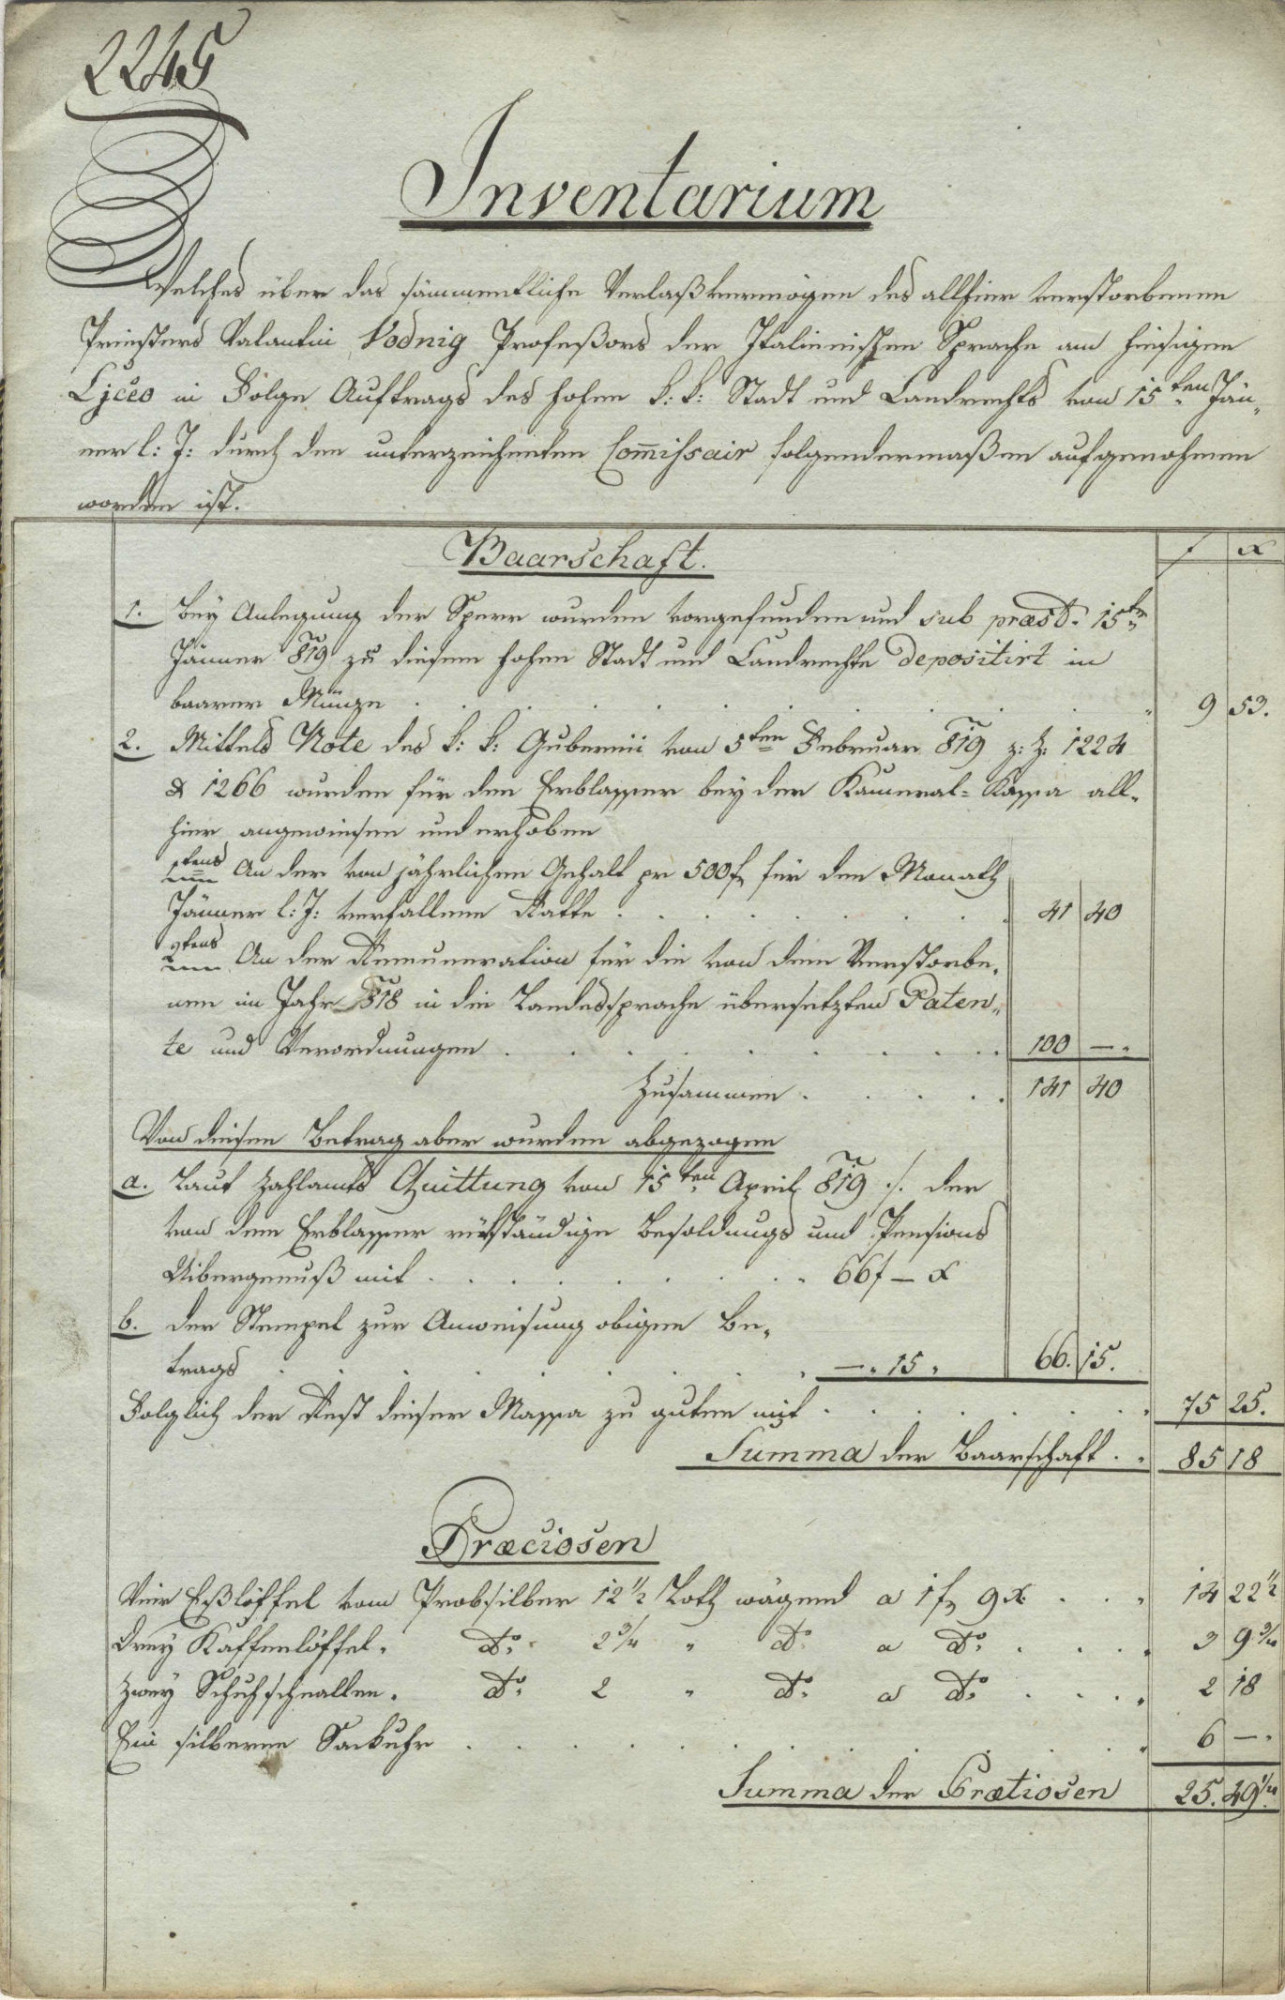 2245
Inventarium
Welches über das sämmentliche Verlaßvermögen des allhier verstorbenen
Priesters Valantin Vodnig Profeßors der Italienischen Sprache am hiesigen
Lÿceo in Folge Auftrags des hohen k: k: Stadt und Landrechts von 15ten Jän„
ner l: J: durch den unterzeichenten Com̄issair folgendermaßen aufgenohmen
worden ist.
Baarschaft. f x
1. Bey Anlegung der Sperr wurden vorgefunden und sub præst. 15ten
Jänner 819 zu diesem hohen Stadt und Landrechte depositirt in
baarer Münze . . . . . . . . . 9 53.
2. Mittels Note des k: k: Gubernii von 5ten Februar 819 z: Z: 1224
& 1266 wurden für den Erblasser bey der Kameral=Kassa all„
hier angewiesen und erhoben
1tens An der von jährlichen Gehalt pr 500f für den Monath
Jänner l: J: verfallene Ratte . . . . . . . 41 40
2tens An der Remuneration für die von dem Verstorbe„
nen im Jahr 818 in die Landessprache übersetzten Paten„
te und Verordnungen . . . . . . . . 100 —.
Zusammen . . . . . 141 40
Von diesen Betrag aber wurden abgezogen
a. Laut Zahlamts Quittung von 15ten April 819 ./. der
von dem Erblasser rükständige Besoldungs und Pensions
Uibergenuß mit . . . . . . . 66f — x
b. der Stempel zur Anweisung obigen Be„
trags . . . . . . . . —. 15. 66. 15.
Folglich der Rest dieser Massa zu guten mit . . . . . . 75 25.
Summa der Baarschaft . . 85 18
Præciosen
Vier Eßlöffel vom Probsilber 12 1/2 Loth wägend a 1f 9x . . . 14 22 1/2
Drey Kaffenlöffel. do. 2 3/4 „ do. a do. . . . . 3 9 3/4
Zwey Schuhschnallen. do. 2 „ do. a do. . . . . 2 18
Ein silberne Sackuhr . . . . . . . . . . 6 —.
Summa der Prætiosen 25. 49 1/4